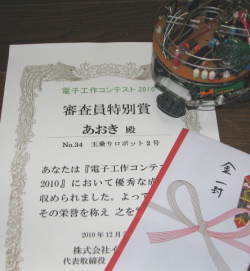 電子工作コンテスト2010
審査員特別賞
あおき 殿
No.34 玉乗りロボット2号
あなたは『電子工作コンテ
2010』において優秀な成
収められました。よって
その栄誉を称え 之を
2010年12月
株式会社
代表取締役
金一封